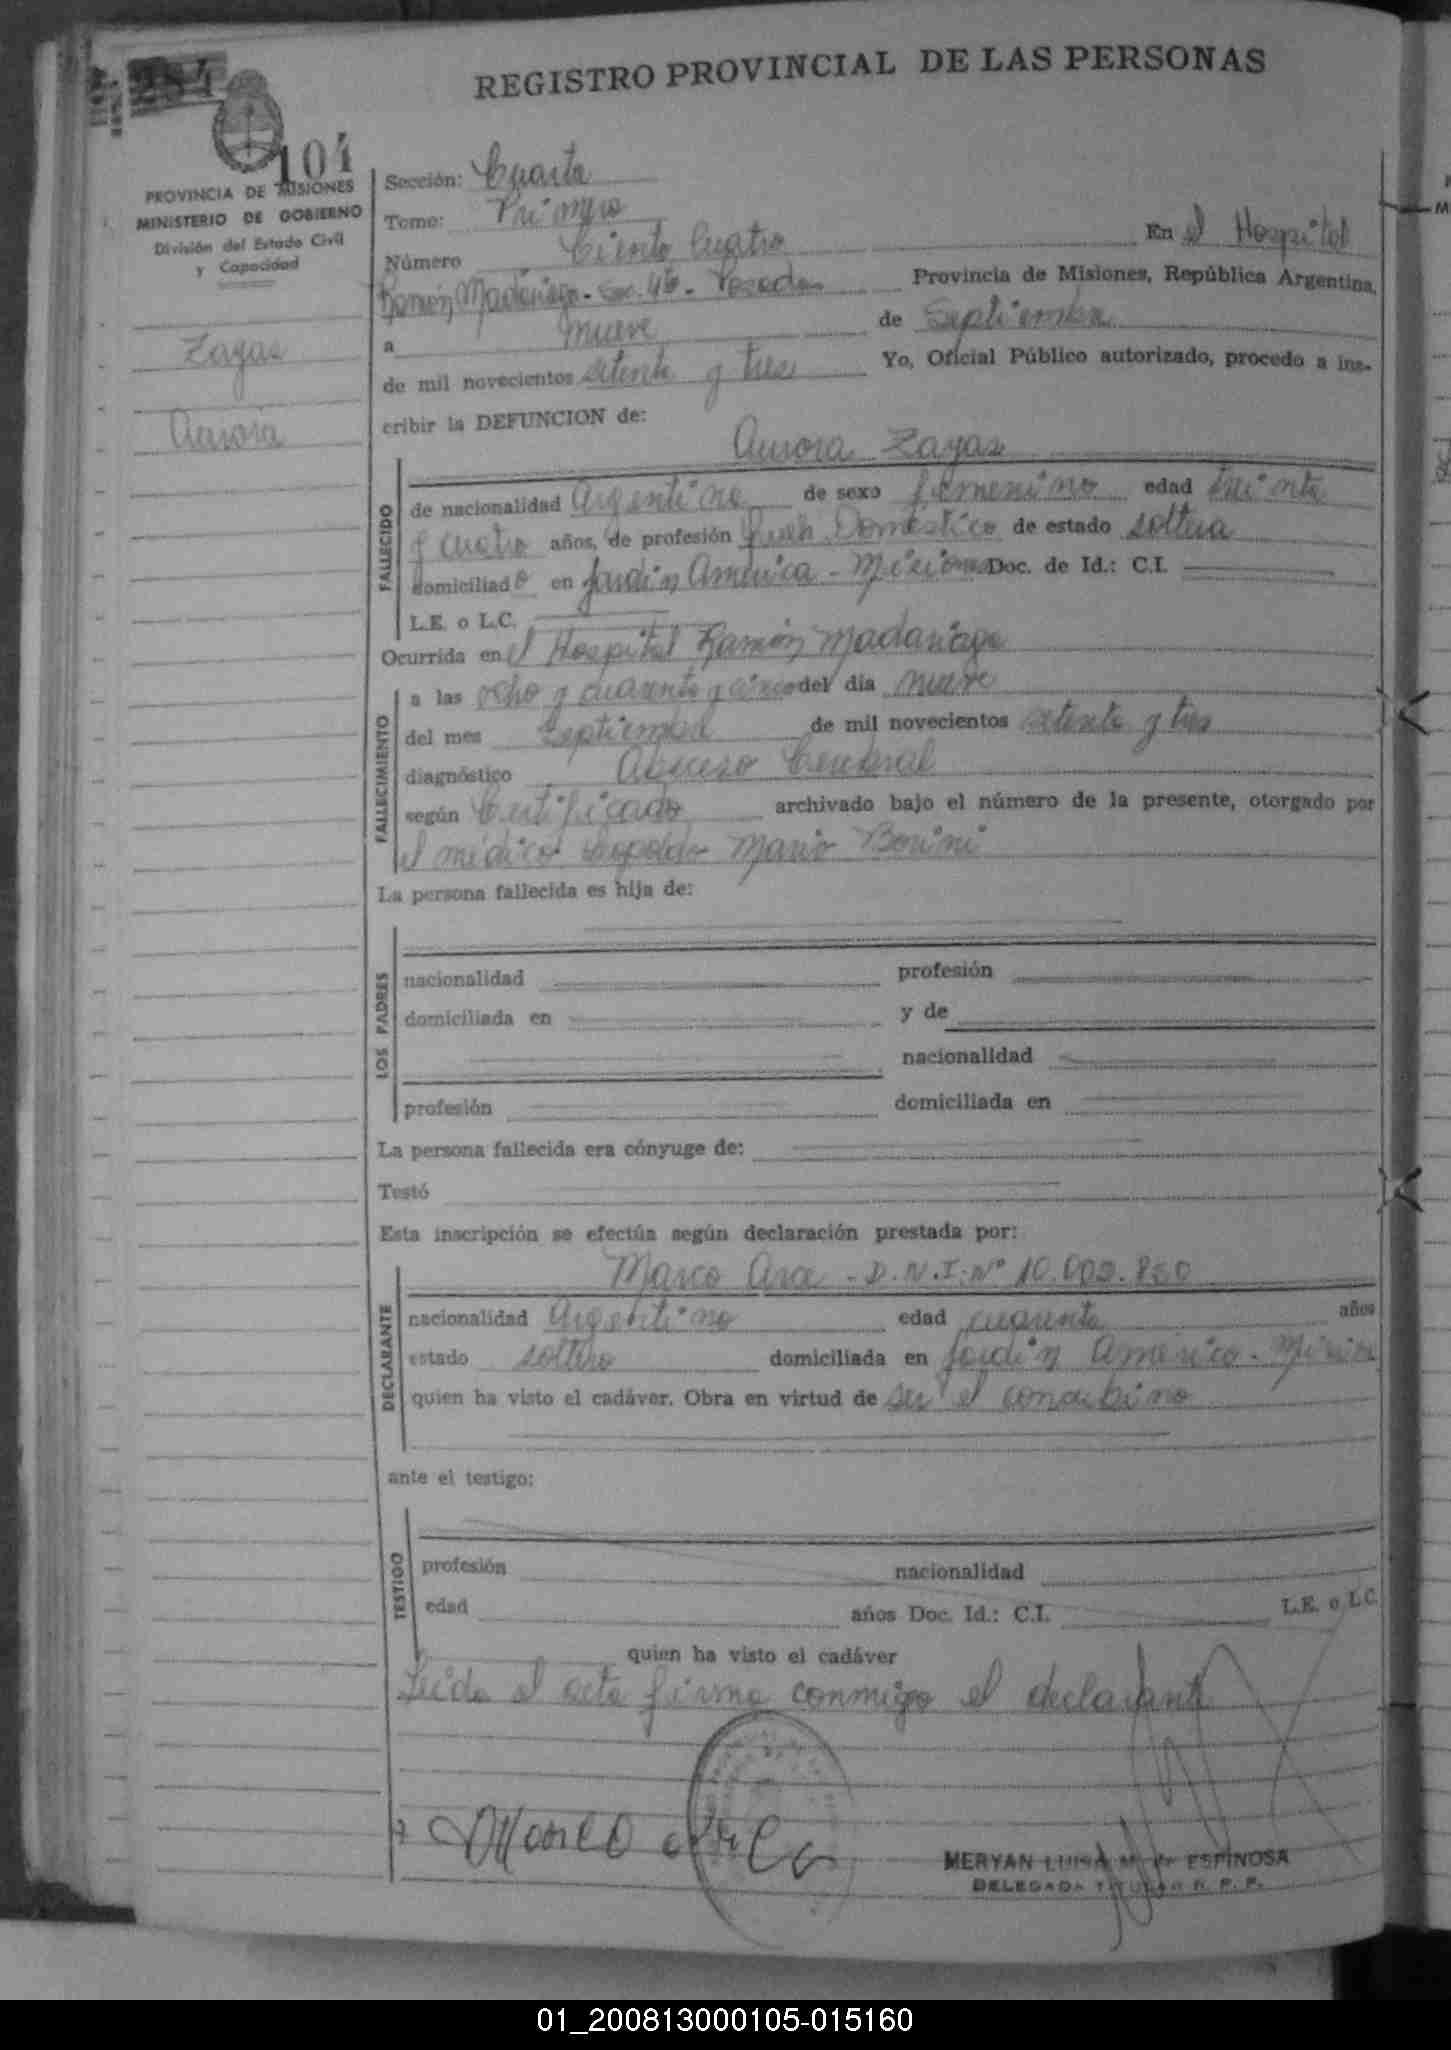 REGISTRO PROVINCIAL DE LAS PERSONAS
104
PROVINCIA DE MISIONES
MINISTERIO DE GOBIERNO
División del Estado Civil
y Capacidad
Zayas
Aurora
Sección: Cuarta
Tomo: Primero
Número Ciento Cuatro En el Hospital
Ramón Madariaga - Sec. 4ta - Posadas Provincia de Misiones, República Argentina,
a nueve de Septiembre
de mil novecientos setenta y tres Yo, Oficial Público autorizado, procedo a ins-
cribir la DEFUNCION de:
Aurora Zayas
FALLECIDO
de nacionalidad Argentina de sexo femenino edad treinta
y cuatro años, de profesión Doméstico de estado soltera
domiciliado en Jardín América - Misiones Doc. de Id.: C.I.
L.E. o L.C.
Ocurrida en el Hospital Ramón Madariaga
FALLECIMIENTO
a las ocho y cuarenta y cinco del día nueve
del mes Septiembre de mil novecientos setenta y tres
diagnóstico Absceso Cerebral
según Certificado archivado bajo el número de la presente, otorgado por
el médico Leopoldo Mario Bonini
La persona fallecida es hija de:
LOS PADRES
nacionalidad profesión
domiciliada en y de
nacionalidad
profesión domiciliada en
La persona fallecida era cónyuge de:
Testó
Esta inscripción se efectúa según declaración prestada por:
DECLARANTE
Marco Arce - D.N.I. Nº 10.003.850
nacionalidad Argentino edad cuarenta años
estado soltero domiciliada en Jardín América - Misiones
quien ha visto el cadáver. Obra en virtud de ser el concubino
ante el testigo:
TESTIGO
profesión nacionalidad
edad años Doc. Id.: C.I. L.E. o L.C.
quien ha visto el cadáver
Leida el acta firma conmigo el declarante
MERYAN LUISA ESPINOSA
DELEGADA TITULAR R. P. P.
01_200813000105-015160